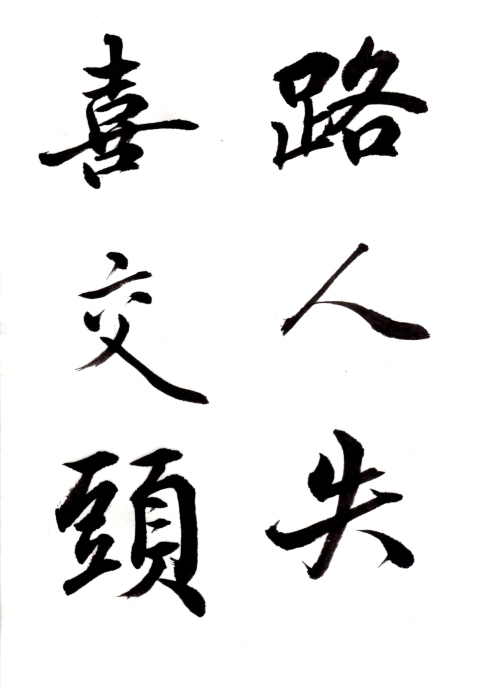 路人失
喜交頭